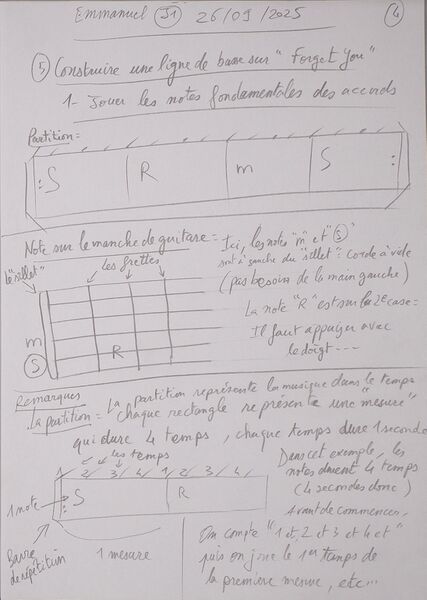 Emmanuel S1 26/09/2025 4
5 Construire une ligne de basse sur "Forget You"
1- Jouer les notes fondamentales des accords
Partition =
S R m S
Note sur le manche de guitare = Ici, les notes "m" et "S"
Le "sillet" Les frettes sont à gauche du "sillet": corde à vide
(pas besoin de la main gauche)
La note "R" est sur la 2e case =
m
S R
Il faut appuyer avec
le doigt ---
Remarques
La partition = La partition représente la musique dans le temps
chaque rectangle représente une "mesure"
qui dure 4 temps, chaque temps dure 1 seconde
les temps
1 2 3 4 1 2 3 4
Dans cet exemple, les
notes durent 4 temps
(4 secondes donc)
1 note S R
Avant de commencer,
Barre
de répétition
1 mesure
On compte "1 et, 2 et 3 et 4 et"
puis on joue le 1er temps de
la première mesure, etc...